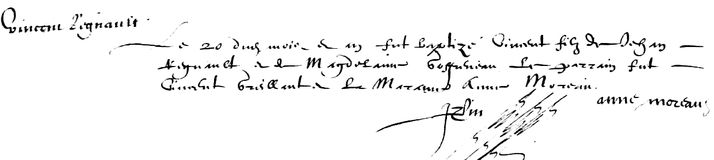 Vincent Regnault
Le 20 dud mois & an fut baptizé Vincent filz de Jehan
Regnault & de Magdelaine le parrain fut
Vincent & la Marainne Anne Moreau.
anne moreau